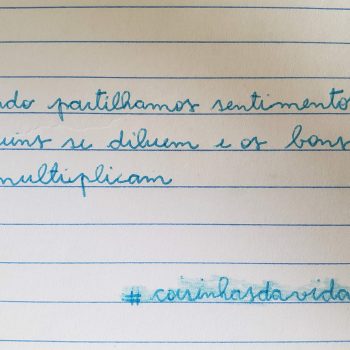 ndo partilhamos sentimentos
uins se diluem e os bons
multiplicam
# coisinhasdavida